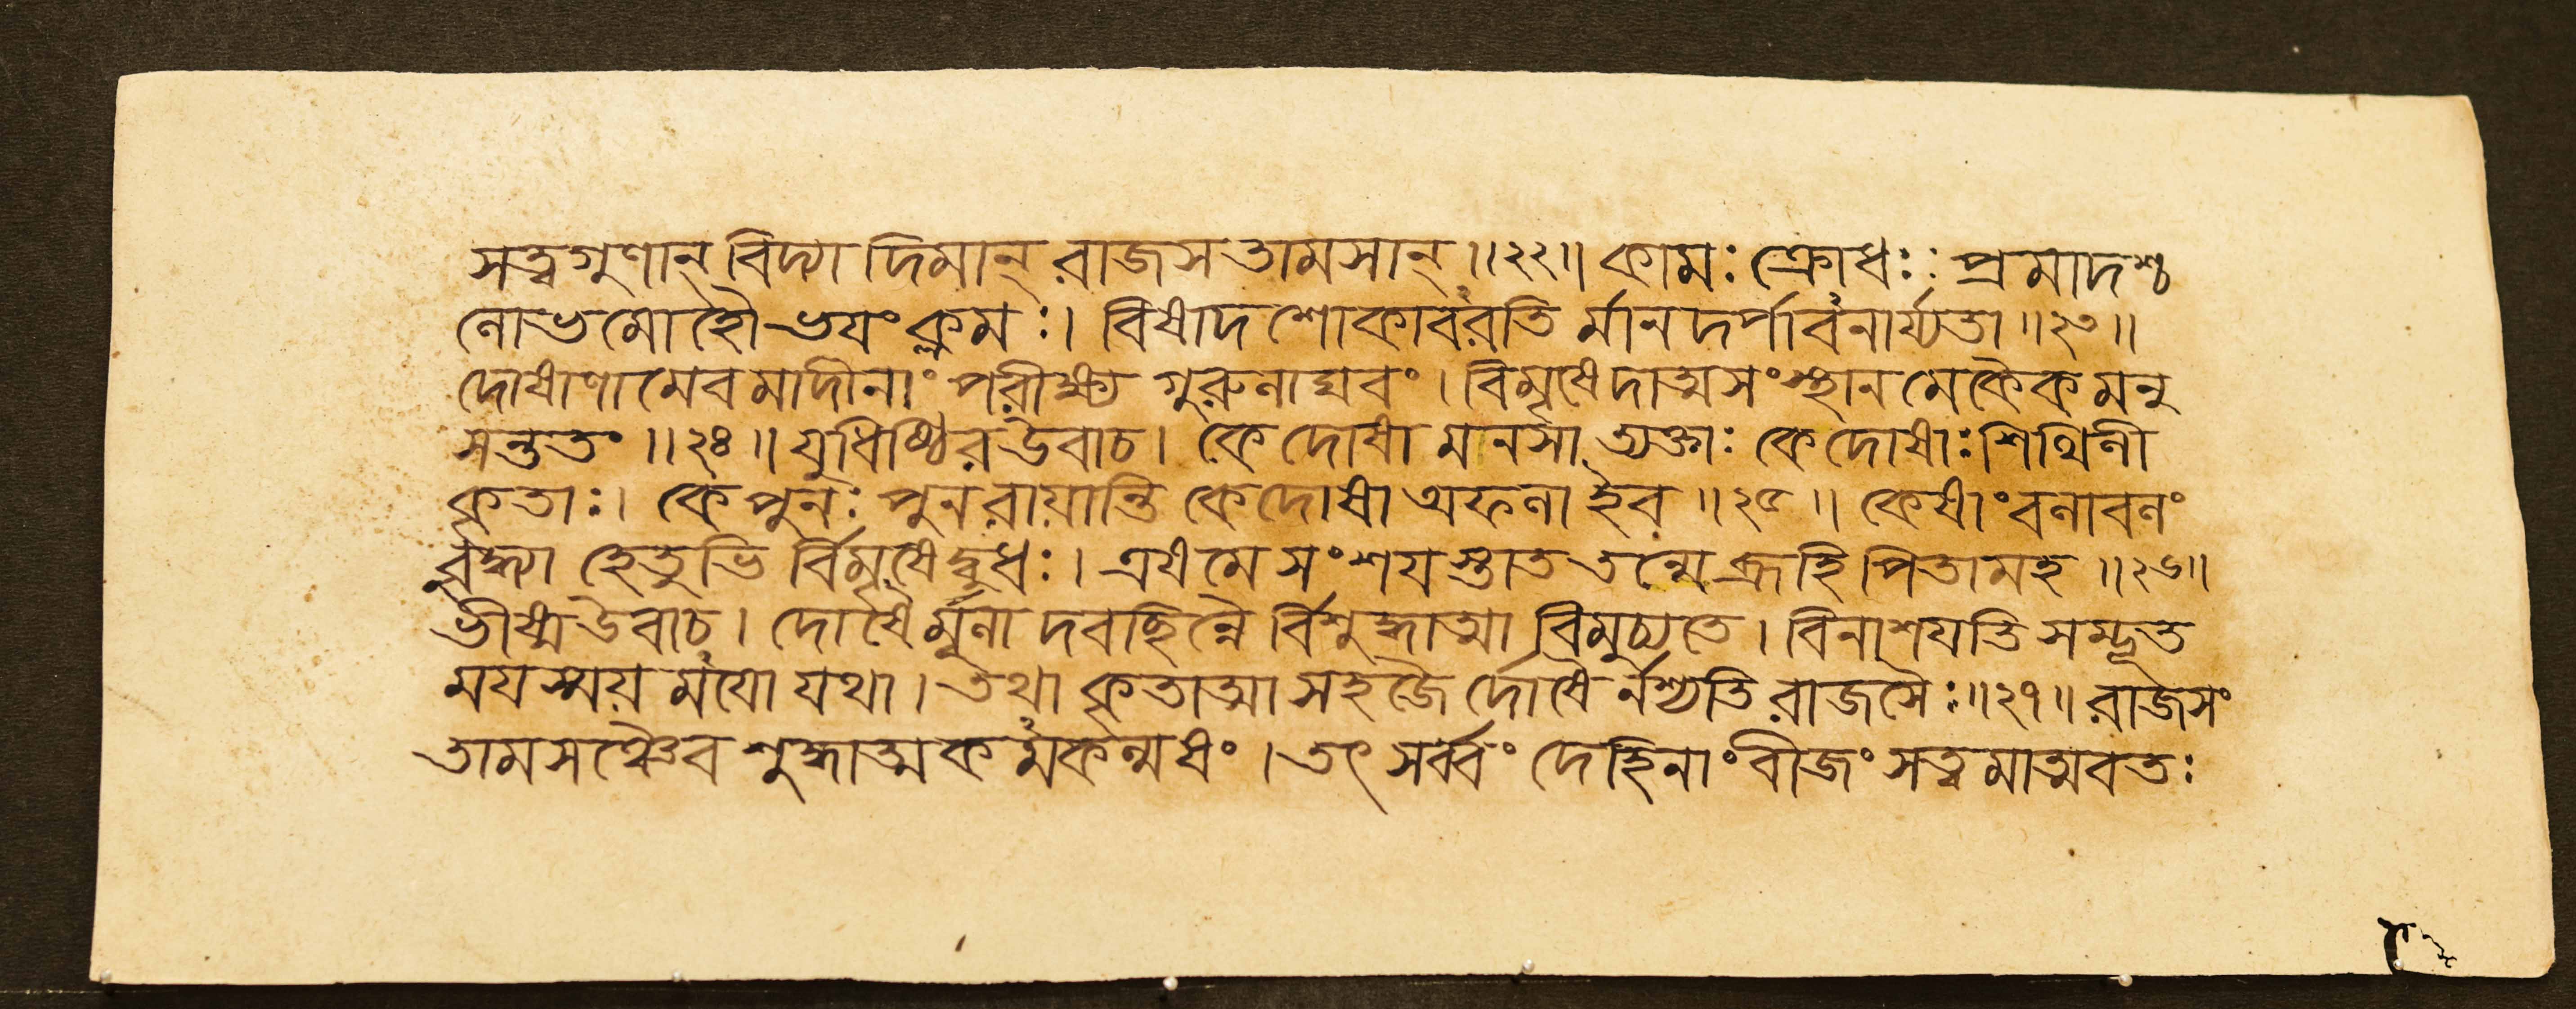 সত্ত্বগুণান্ বিদ্যা দিমান্ রাজস তামসান্ ॥২২॥ কামঃ ক্রোধঃ : প্রমাদশ্চ
লোভমোহৌ ভয়ং ক্লমঃ । বিষাদ শোকাবরতি র্মান দর্পাবনার্য্যতা ॥২৩॥
দোষাণা মেব মাদীনাং পরীক্ষ্য গুরুলাঘবং । বিমৃষেদাত্মসংস্থান মেকৈক মনু
সন্ততং ॥২৪॥ যুধিষ্ঠির উবাচ । কে দোষা মনসা ত্যক্তাঃ কে দোষাঃ শিথিলী
কৃতাঃ । কে পুনঃ পুনরায়ান্তি কে দোষা অফলা ইব ॥২৫॥ কেষাং বলাবলং
বুদ্ধ্যা হেতুভি র্বিমৃষেদ্বুধঃ । এষ মে সংশয় স্তাত তন্মে ব্রূহি পিতামহ ॥২৬॥
ভীষ্ম উবাচ । দোষৈ র্মূলা দবছিন্নৈ র্বিশুদ্ধাত্মা বিমুচ্যতে । বিনাশয়তি সম্ভূত
ময়স্ময় ময়ো যথা । তথা কৃতাত্মা সহজৈ র্দোষৈ র্নশ্যতি রাজসৈঃ ॥২৭॥ রাজসং
তামসঞ্চৈব শুদ্ধাত্মক মকল্মষং । তৎ সর্ব্বং দেহিনাং বীজং সত্ত্বমাত্মবতঃ